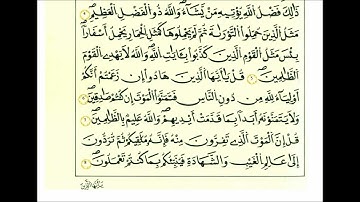 ذَٰلِكَ فَضْلُ اللَّهِ يُؤْتِيهِ مَن يَشَاءُ وَاللَّهُ ذُو الْفَضْلِ الْعَظِيمِ ٤
مَثَلُ الَّذِينَ حُمِّلُوا التَّوْرَاةَ ثُمَّ لَمْ يَحْمِلُوهَا كَمَثَلِ الْحِمَارِ يَحْمِلُ أَسْفَارًا
بِئْسَ مَثَلُ الْقَوْمِ الَّذِينَ كَذَّبُوا بِآيَاتِ اللَّهِ وَاللَّهُ لَا يَهْدِي الْقَوْمَ
الظَّالِمِينَ ٥ قُلْ يَا أَيُّهَا الَّذِينَ هَادُوا إِن زَعَمْتُمْ أَنَّكُمْ
أَوْلِيَاءُ لِلَّهِ مِن دُونِ النَّاسِ فَتَمَنَّوُا الْمَوْتَ إِن كُنتُمْ صَادِقِينَ ٦
وَلَا يَتَمَنَّوْنَهُ أَبَدًا بِمَا قَدَّمَتْ أَيْدِيهِمْ وَاللَّهُ عَلِيمٌ بِالظَّالِمِينَ ٧
قُلْ إِنَّ الْمَوْتَ الَّذِي تَفِرُّونَ مِنْهُ فَإِنَّهُ مُلَاقِيكُمْ ثُمَّ تُرَدُّونَ
إِلَىٰ عَالِمِ الْغَيْبِ وَالشَّهَادَةِ فَيُنَبِّئُكُم بِمَا كُنتُمْ تَعْمَلُونَ ٨